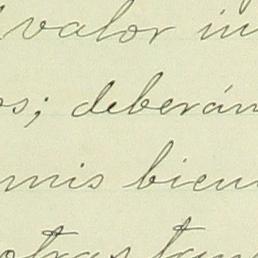 valor in
os; deberán
mis bien
otras tam